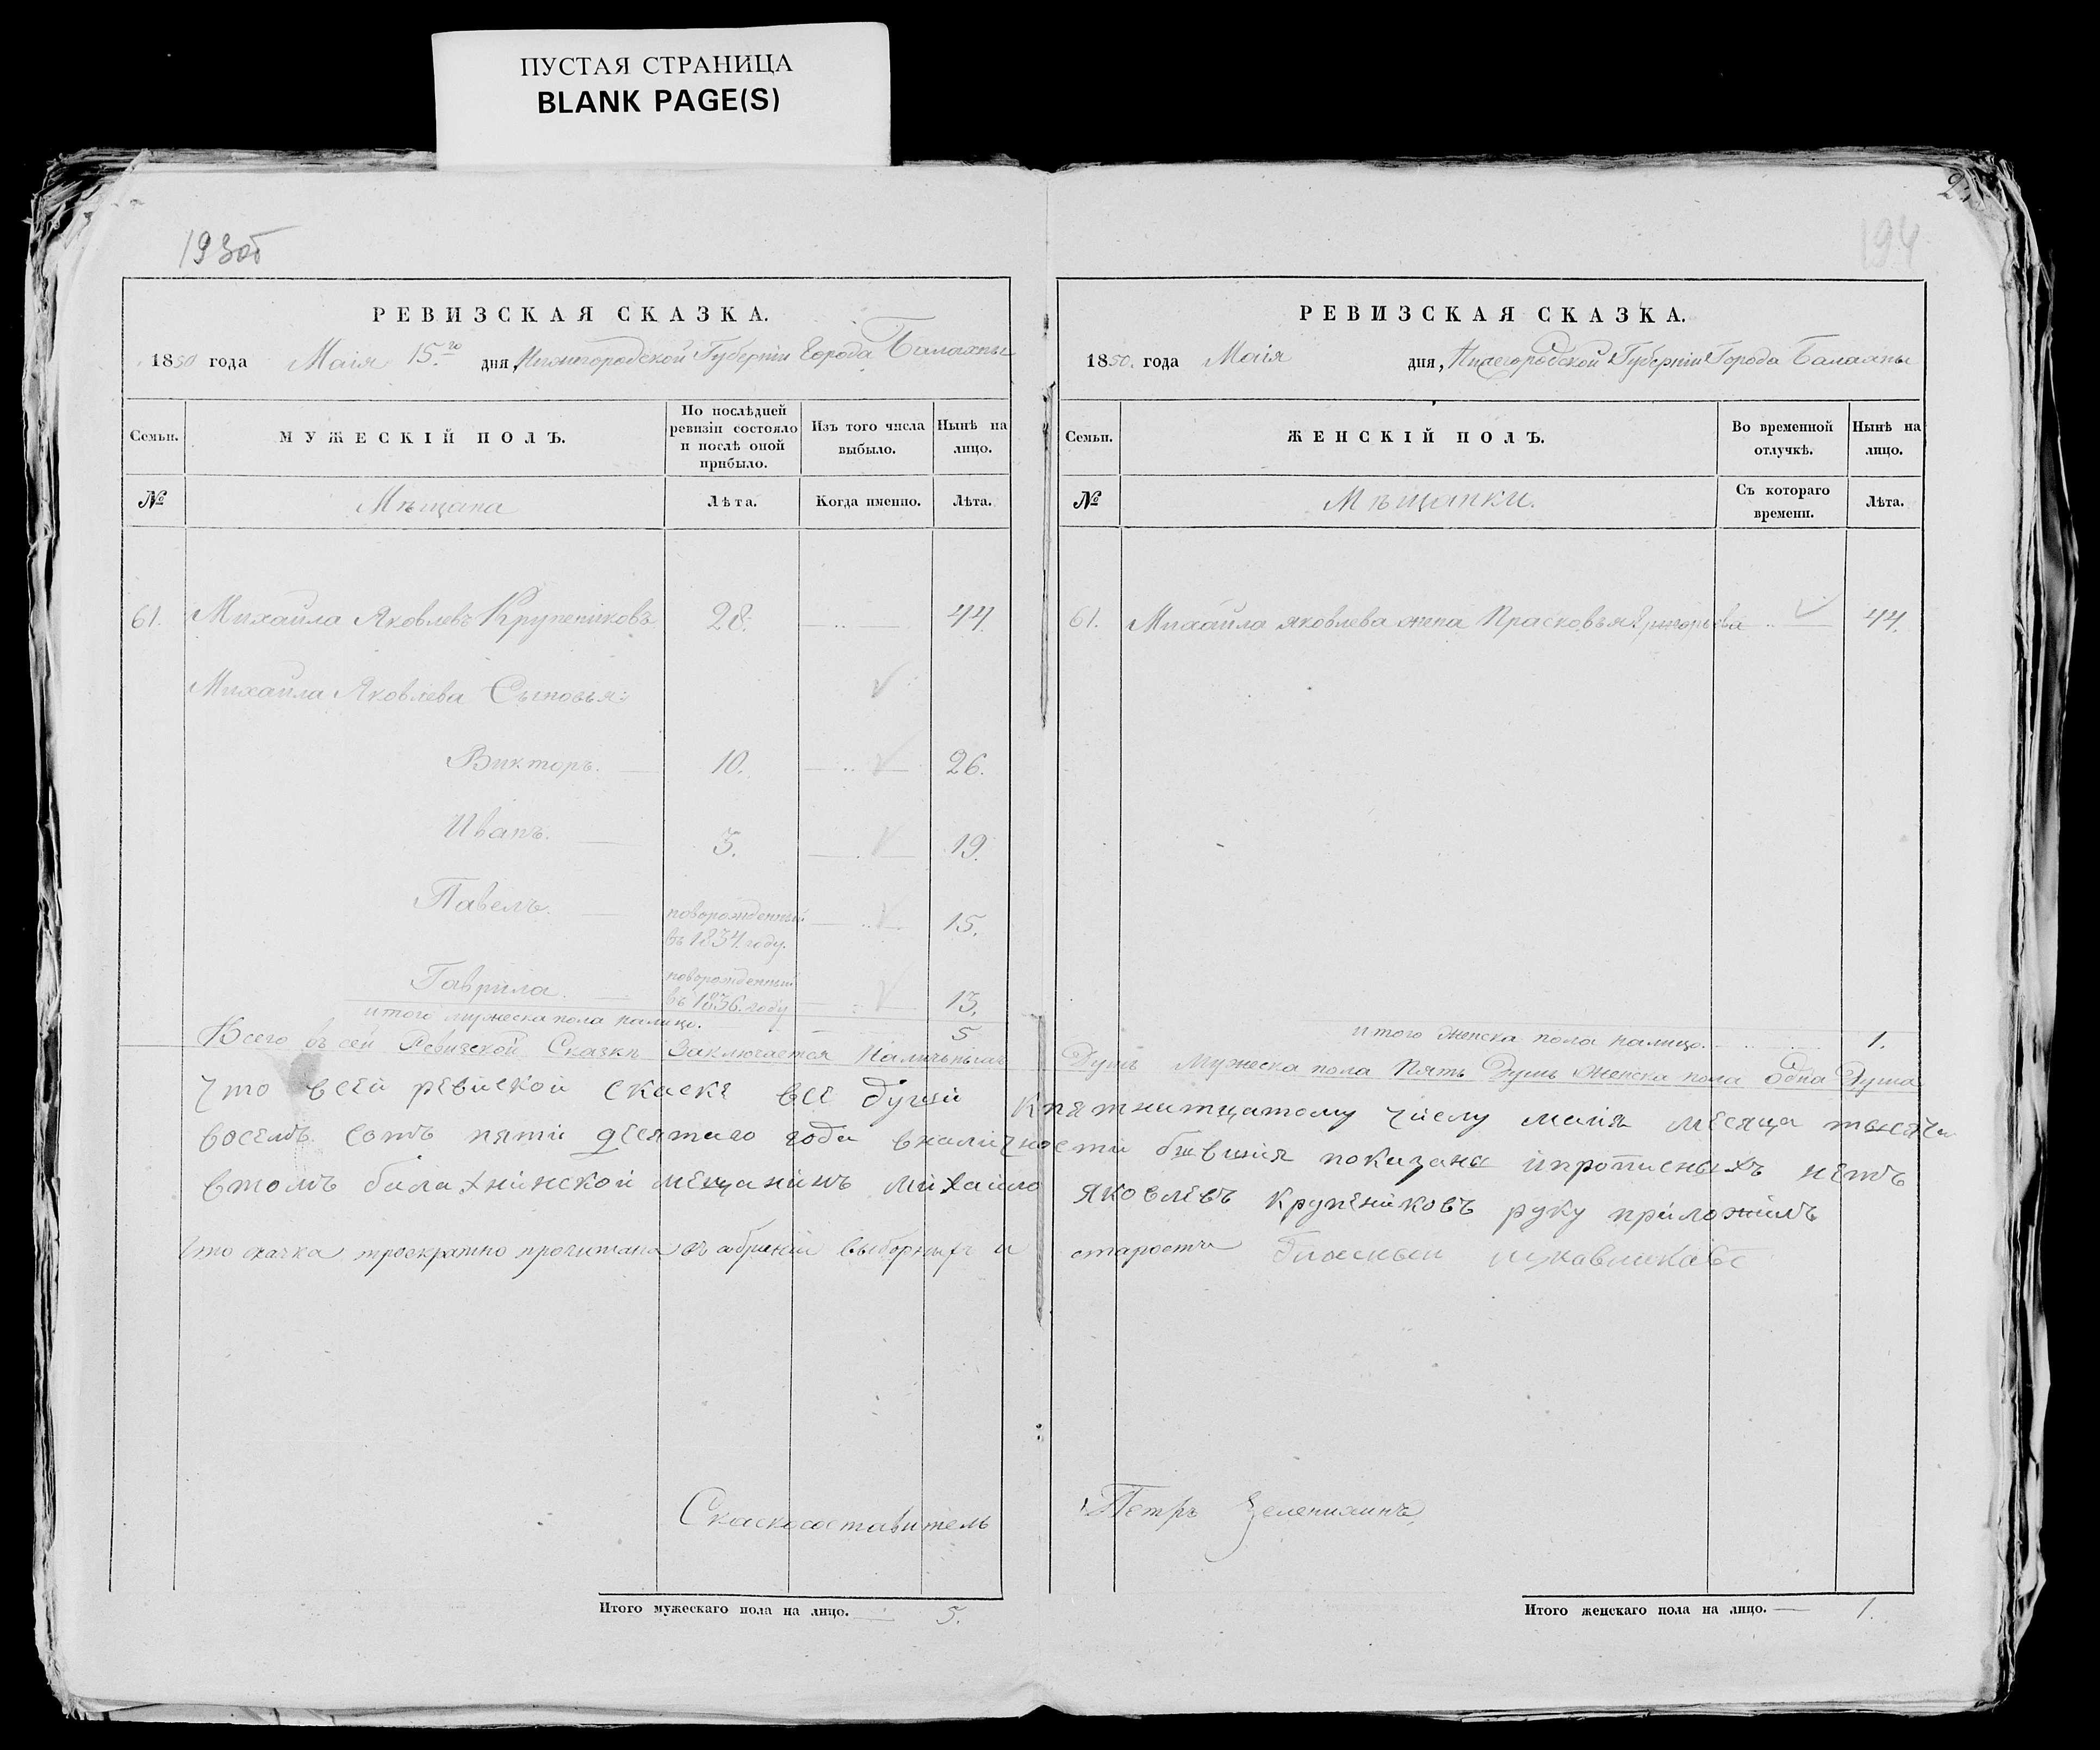 ПУСТАЯ СТРАНИЦА
BLANK PAGE(S)
193об
РЕВИЗСКАЯ СКАЗКА.
1850 года Маія 15го дня, Нижигородской Губерніи Города Балахны
Семьи. МУЖЕСКІЙ ПОЛЪ. По послѣдней ревизіи состояло и послѣ оной прибыло. Изъ того числа выбыло. Нынѣ на лицо.
№ Мѣщана Лѣта. Когда именно. Лѣта.
61. Михайла Яковлевъ Крупениковъ 28. 44.
Михайла Яковлева Сыновья:
Викторъ. 10. 26.
Иванъ. 3. 19.
Павелъ. новорожденный въ 1834. году. 15.
Гаврила. новорожденный въ 1836. году 13.
итого мужеска пола налицо. 5
Всего въ сей Ревизской Сказкѣ Заключается Наличныхъ
что всей ревиской скаске все души
воселмъ сотъ пяти десятаго года
втомъ балахнинской мещанинъ михайло
что скачка троекратно прочитана въ собрании выборныхъ и
Скаскосоставитель
Итого мужескаго пола на лицо. 5.
194
РЕВИЗСКАЯ СКАЗКА.
1850. года Маія дня, Нижегородской Губерніи Города Балахны
Семьи. ЖЕНСКІЙ ПОЛЪ. Во временной отлучкѣ. Нынѣ на лицо.
№ Мѣщанки. Съ котораго времени. Лѣта.
61. Михайла яковлева жена Прасковья Григорьева 44.
итого женска пола налицо. 1.
Душъ Мужеска пола Пять Душъ Женска пола Одна Душа
кпятнитцатому числу маия месяца тысяча
вналичности бывшия показана ипрописныхъ нетъ
яковлевъ крупениковъ руку приложилъ
старосты
Петръ Зеленилинъ
Итого женскаго пола на лицо. 1.